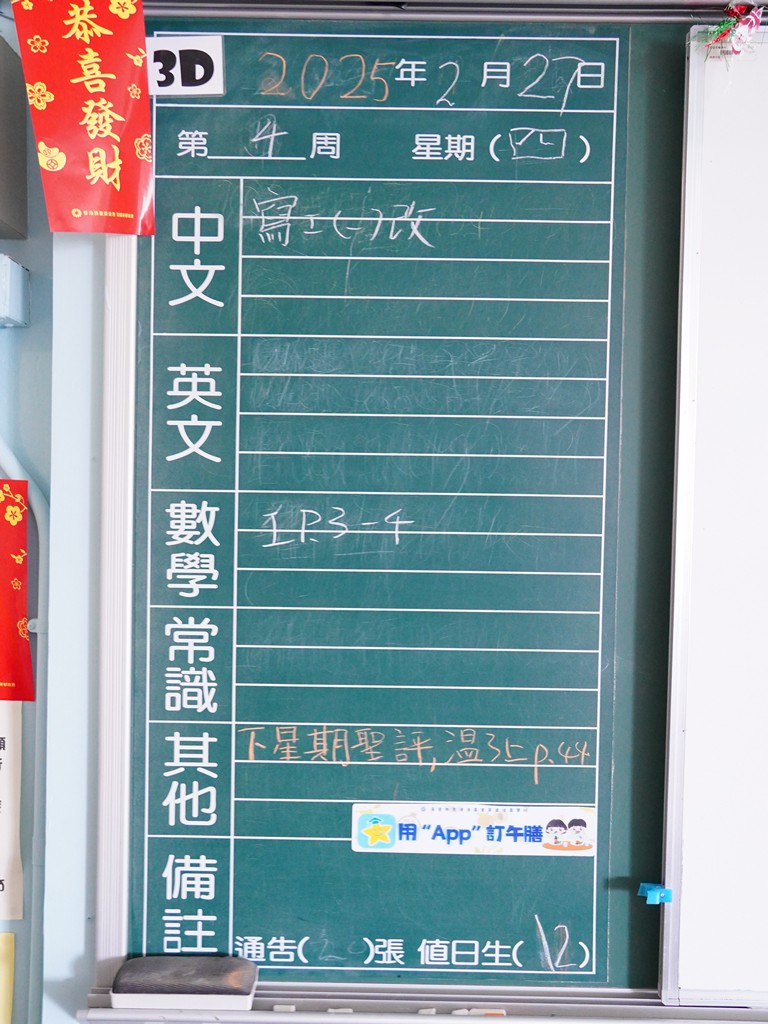 恭喜發財
3D
2025年2月27日
第4周 星期(四)
中文 寫工(一)改
英文
數學 工P.3-4
常識
其他 下星期聖評,溫3上p.44
用“App”訂午膳
備註
通告(2)張 值日生(12)